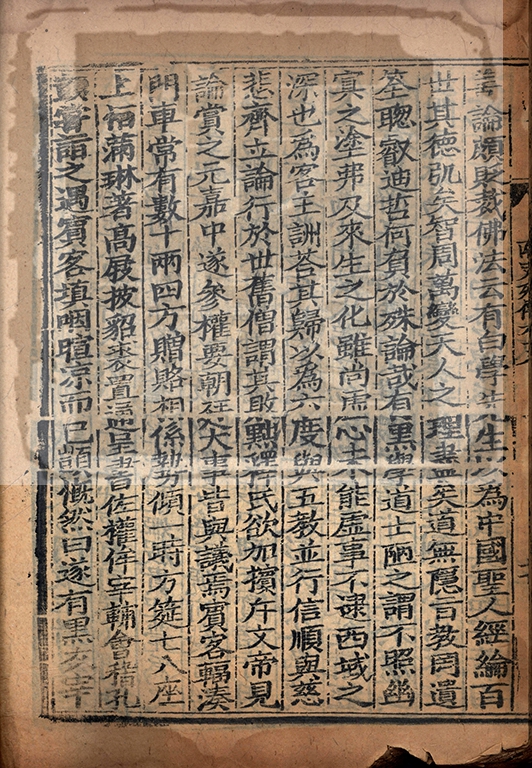 論頗貶裁佛法云有白學先生以為中國聖人經綸百
世其德弘矣智周萬變天人之理盡矣道無隱旨教罔遺
筌聰叡迪哲何負於殊論哉有黒學道士陋之謂不照幽
冥之塗弗及來生之化雖尚虛心未能虛事不逮西域之
深也為客主詶荅其歸以為六度與五教並行信順與慈
悲齊立論行於世舊僧謂其貶黜釋氏欲加擯斥文帝見
論賞之元嘉中遂參權要朝廷大事皆與議焉賓客輻湊
門車常有數十兩四方贈賂相係勢傾一時方筵七八座
上恒滿琳著高屐披貂裘置通呈書佐權侔宰輔會稽孔
顗嘗詣之遇賓客填咽暄凉而已顗慨然曰遂有黒衣宰